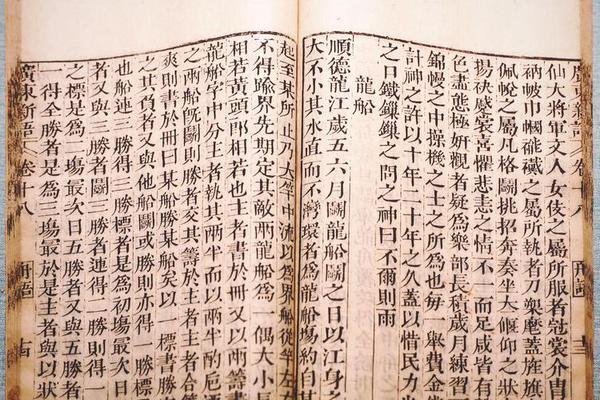 廣東新語 卷十八 舟語 十三
仙大將軍文人女伎之屬所服者冠裳介冑
衲帔巾幗襳之屬所執者刀槊麾蓋旌旗
佩帨之屬凡格鬬挑招奔奏坐大偃仰之狀
揚袂蹙裳喜懼悲恚之情不一而足咸皆有
色盡態極妍觀者疑為樂部長積歲月練習
錦幔之中操機之士之所為也每一舉費金錢
計神之許以十年二十年之久蓋以惜民力也
之曰鐵之問之神曰不爾則雨
龍船
順德龍江歲五六月鬬龍船鬬之日以江身之
大不小其水直而不灣環者為龍船塲約自某
起至某所止乃大竿中流以為界船從竿左右
不得踰界先期定其敵兩龍船為一偶大小長
相若黃頭郎相若也主者書於冊又以兩籌書
龍船字中分主者執其兩半而以兩半酌巵酒
之兩船旣鬬則勝者交其籌於主者主者合籌
爽則書於冊曰某船勝某船矣以 標書勝
之其負者又與他船鬬或勝則亦得一勝標
也船連三勝得三勝標者是為初塲最次日
者又與三勝者鬬三勝者連得二勝則得一
之標是為二塲最次日五勝者又與五勝者
一得全勝者是為塲最於是主者與以狀
廣東新語 卷十八 舟語 十四